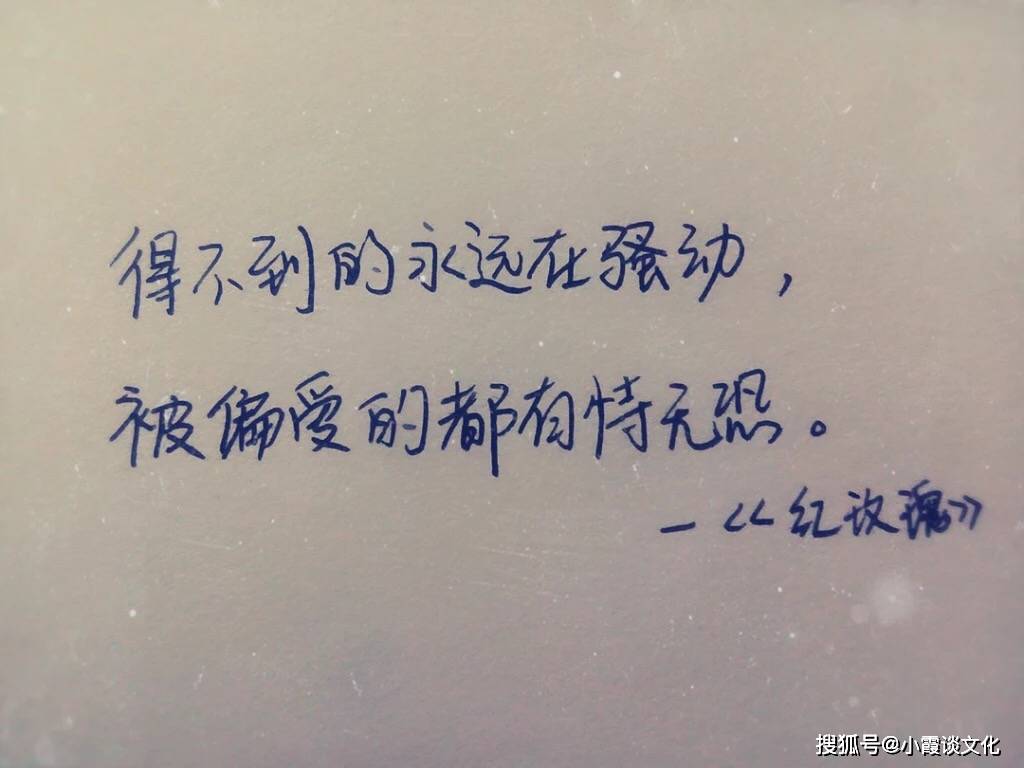 得不到的永远在骚动，
被偏爱的都有恃无恐。
—《红玫瑰》
搜狐号@小霞谈文化